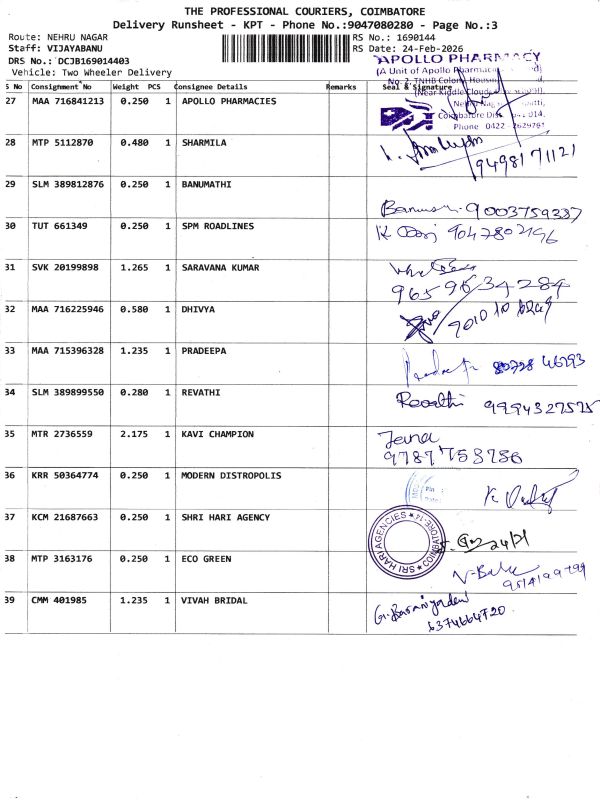 THE PROFESSIONAL COURIERS, COIMBATORE
Delivery Runsheet - KPT - Phone No.:9047080280 - Page No.:3
Route: NEHRU NAGAR RS No.: 1690144
Staff: VIJAYABANU RS Date: 24-Feb-2026
DRS No.: DCJB169014403
Vehicle: Two Wheeler Delivery
S No Consignment No Weight PCS Consignee Details Remarks Seal & Signature
APOLLO PHARMACY
(A Unit of Apollo
No. 2, TNHB Colony
27 MAA 716841213 0.250 1 APOLLO PHARMACIES
Phone 0422
28 MTP 5112870 0.480 1 SHARMILA
9498171121
29 SLM 389812876 0.250 1 BANUMATHI
9003759337
30 TUT 661349 0.250 1 SPM ROADLINES
9047802196
31 SVK 20199898 1.265 1 SARAVANA KUMAR
9659634284
32 MAA 716225946 0.580 1 DHIVYA
33 MAA 715396328 1.235 1 PRADEEPA
34 SLM 389899550 0.280 1 REVATHI
Revathi 9994327575
35 MTR 2736559 2.175 1 KAVI CHAMPION
Jena
9787758786
36 KRR 50364774 0.250 1 MODERN DISTROPOLIS
37 KCM 21687663 0.250 1 SHRI HARI AGENCY
SRI HARI AGENCIES COIMBATORE-14
38 MTP 3163176 0.250 1 ECO GREEN
39 CMM 401985 1.235 1 VIVAH BRIDAL
6374664720